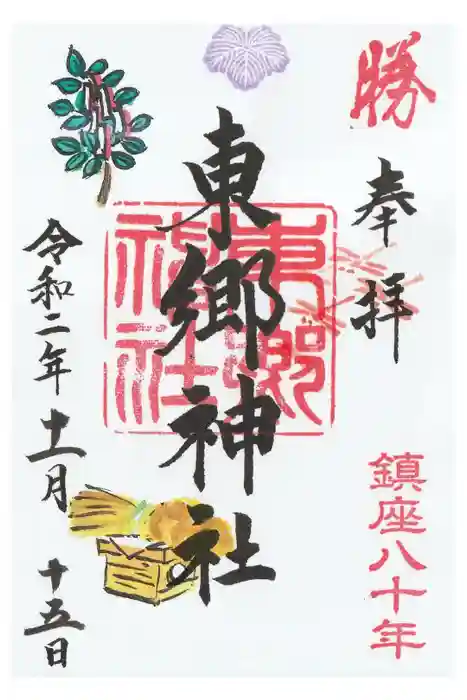 勝
奉拝
鎮座八十年
東郷神社
東郷神社
令和二年十一月十五日